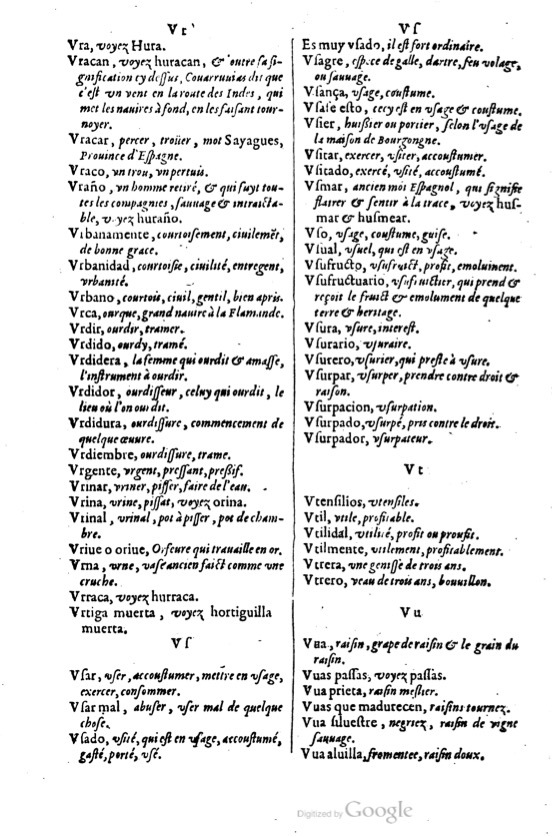 Vr
Vra, voyez Hura.
Vracan, voyez huracan, & outre sa si-
gnification cy dessus, Couarruuias dit que
c'est vn vent en la route des Indes, qui
met les nauires à fond, en les faisant tour-
noyer.
Vracar, percer, troüer, mot Sayagues,
Prouince d'Espagne.
Vraco, vn trou, vn pertuis.
Vraño, vn homme retiré, & qui fuyt tou-
tes les compagnies, sauuage & intraicta-
ble, voyez huraño.
Vrbanamente, courtoisement, ciuilemẽt,
de bonne grace.
Vrbanidad, courtoisie, ciuilité, entregent,
vrbanité.
Vrbano, courtois, ciuil, gentil, bien apris.
Vrca, ourque, grand nauire à la Flamande.
Vrdir, ourdir, tramer.
Vrdido, ourdy, tramé.
Vrdidera, la femme qui ourdit & amasse,
l'instrument à ourdir.
Vrdidor, ourdisseur, celuy qui ourdit, le
lieu où l'on ourdit.
Vrdidura, ourdissure, commencement de
quelque œuure.
Vrdiembre, ourdissure, trame.
Vrgente, vrgent, pressant, pressif.
Vrinar, vriner, pisser, faire de l'eau.
Vrina, vrine, pissat, voyez orina.
Vrinal, vrinal, pot à pisser, pot de cham-
bre.
Vriue o oriue, Orfeure qui trauaille en or.
Vrna, vrne, vase ancien faict comme vne
cruche.
Vrraca, voyez hurraca.
Vrtiga muerta, voyez hortiguilla
muerta.
Vſ
Vſar, vser, accoustumer, mettre en vsage,
exercer, consommer.
Vſar mal, abuser, vser mal de quelque
chose.
Vſado, vsité, qui est en vsage, accoustumé,
gasté, porté, vsé.
Vſ
Es muy vſado, il est fort ordinaire.
Vſagre, espece de galle, dartre, feu volage,
ou sauuage.
Vſança, vsage, coustume.
Vſase esto, cecy est en vsage & coustume.
Vſier, huissier ou portier, selon l'vsage de
la maison de Bourgongne.
Vſitar, exercer, vsiter, accoustumer.
Vſitado, exercé, vsité, accoustumé.
Vſmar, ancien mot Espagnol, qui signifie
flairer & sentir à la trace, voyez hus-
mar & husmear.
Vſo, vsage, coustume, guise.
Vſual, vsuel, qui est en vsage.
Vſufructo, vsufruict, profit, emolument.
Vſufructuario, vsufruictier, qui prend &
reçoit le fruict & emolument de quelque
terre & heritage.
Vſura, vsure, interest.
Vſurario, vsuraire.
Vſurero, vsurier, qui preste à vsure.
Vſurpar, vsurper, prendre contre droit &
raison.
Vſurpacion, vsurpation.
Vſurpado, vsurpé, pris contre le droit.
Vſurpador, vsurpateur.
Vt
Vtensilios, vtensiles.
Vtil, vtile, profitable.
Vtilidal, vtilité, profit ou proufit.
Vtilmente, vtilement, profitablement.
Vtrera, vne genisse de trois ans.
Vtrero, veau de trois ans, bouuillon.
Vu
Vua, raisin, grape de raisin & le grain du
raisin.
Vuas passas, voyez passas.
Vua prieta, raisin meslier.
Vuas que madurecen, raisins tournez.
Vua siluestre, negriez, raisin de vigne
sauuage.
Vua aluilla, fromentee, raisin doux.
Digitized by Google